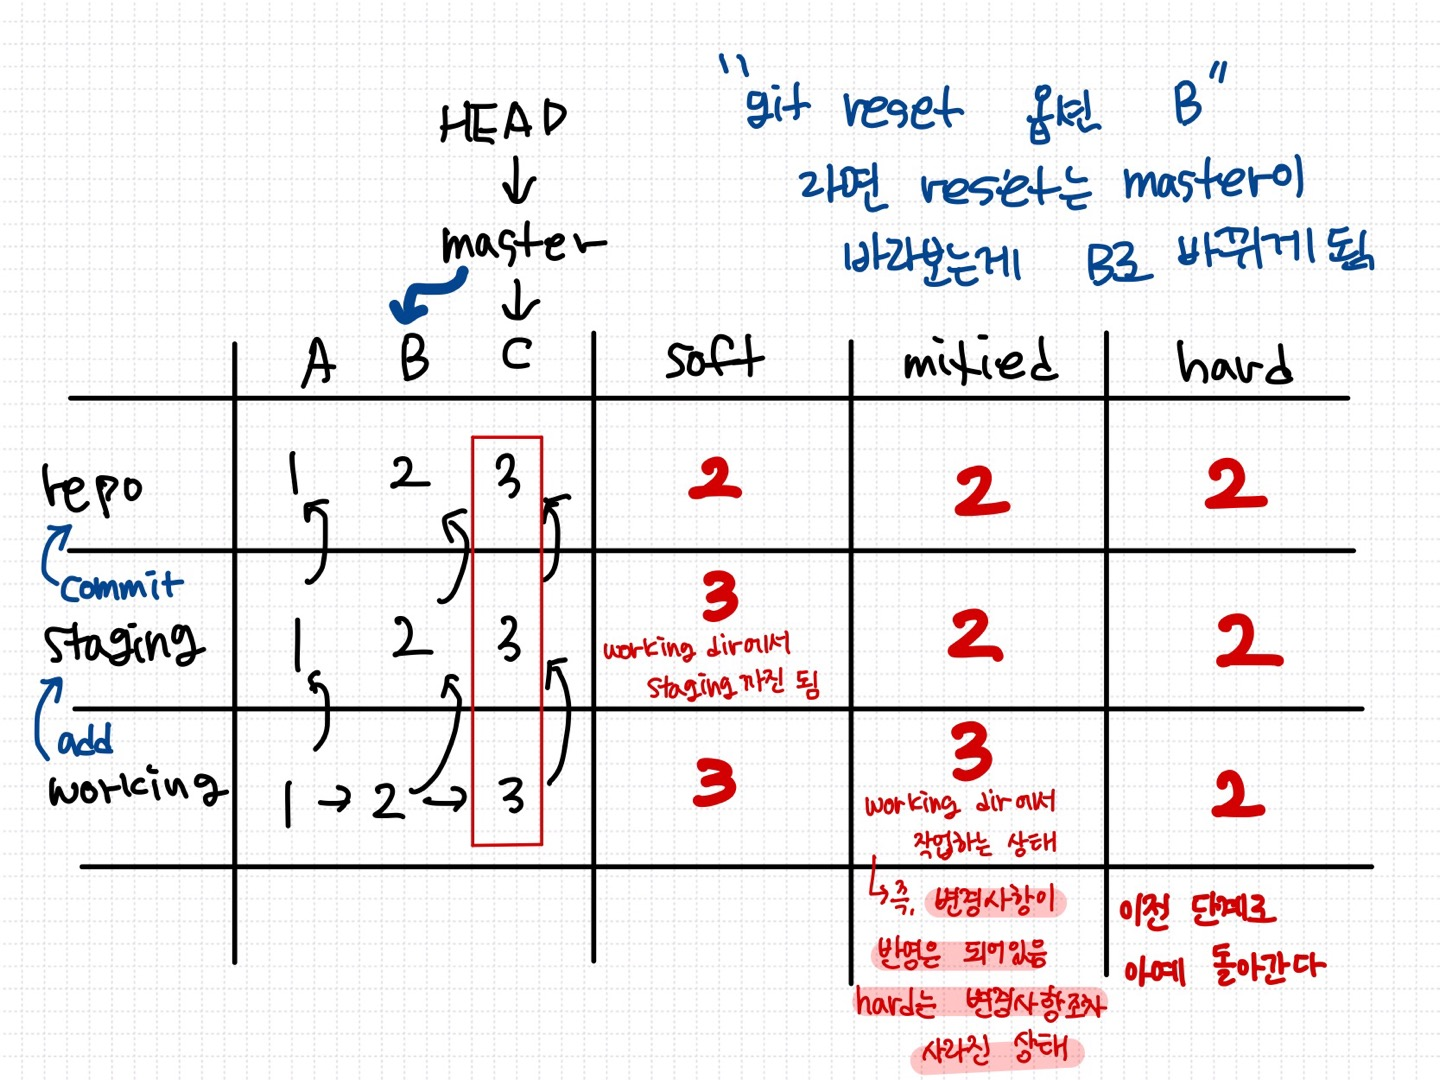 "git reset 옵션 B"
라면 reset는 master이
바라보는게 B로 바뀌게 됨
HEAD
master
A B C soft mixied hard
repo 1 2 3 2 2 2
commit
staging 1 2 3 3 2 2
working dir에서
staging까진 됨
add
working 1 → 2 → 3 3 3 2
working dir에서
작업하는 상태
↳즉, 변경사항이
반영은 되어있음
hard는 변경사항조차
사라진 상태
이전 단계로
아예 돌아간다